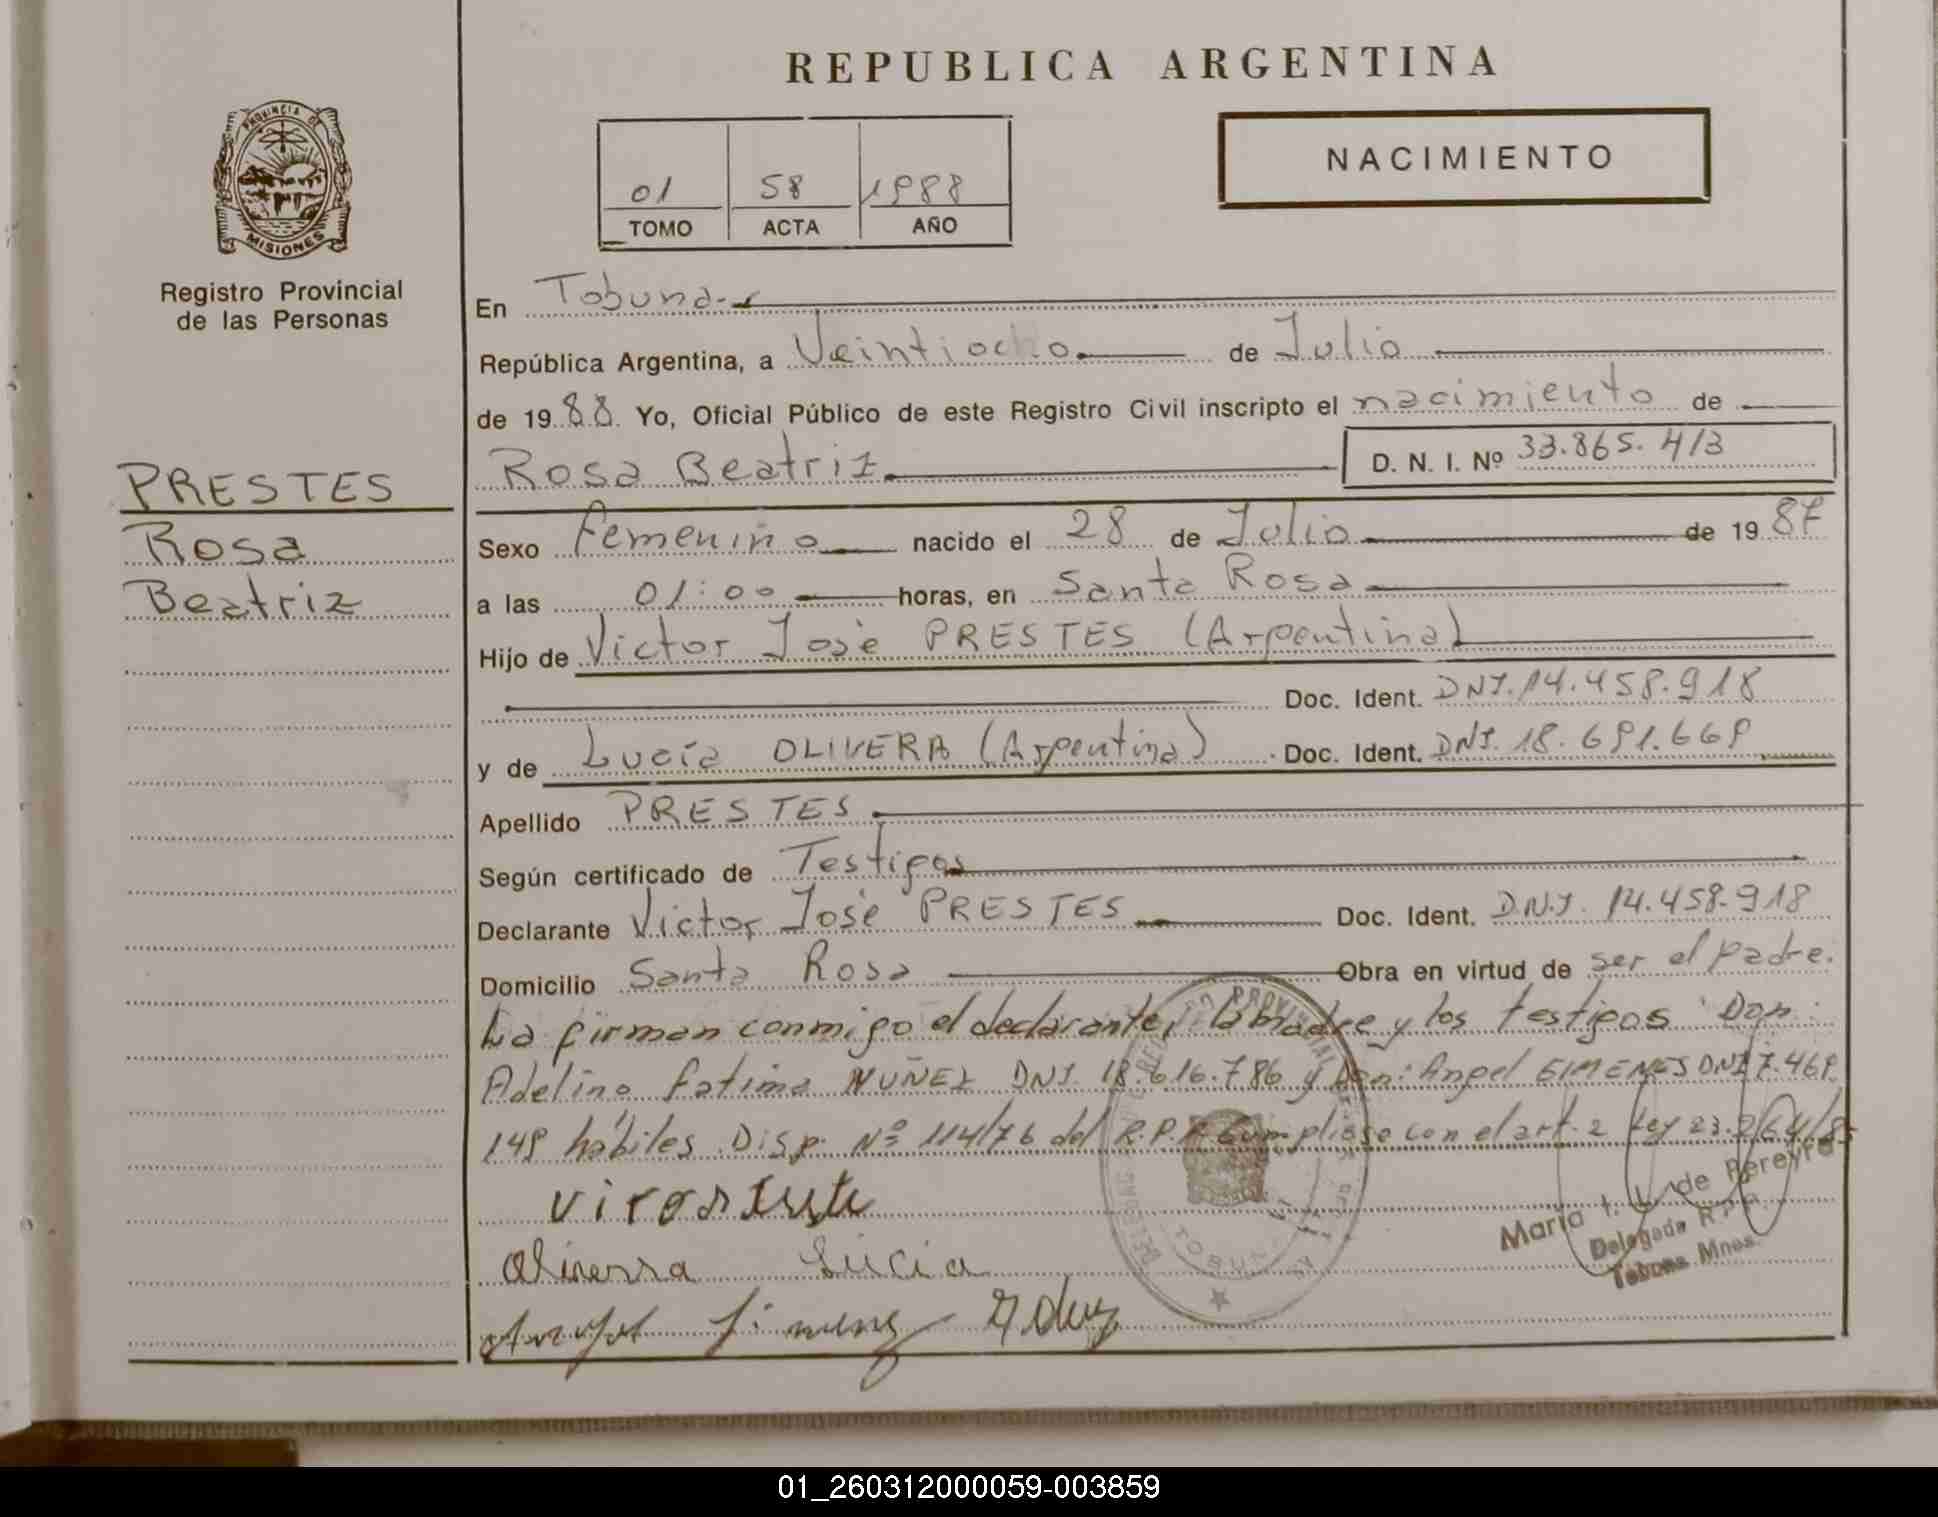 REPUBLICA ARGENTINA
PROVINCIA DE
MISIONES
Registro Provincial
de las Personas
01 58 1988
TOMO ACTA AÑO
NACIMIENTO
PRESTES
Rosa
Beatriz
En Tobuna
República Argentina, a Veintiocho de Julio
de 1988 Yo, Oficial Público de este Registro Civil inscripto el nacimiento de
Rosa Beatriz D. N. I. Nº 33.865.413
Sexo Femenino nacido el 28 de Julio de 1987
a las 01:00 horas, en Santa Rosa
Hijo de Victor José PRESTES (Argentina)
Doc. Ident. DNI. 14.458.918
y de Lucía OLIVERA (Argentina) Doc. Ident. DNI. 18.691.669
Apellido PRESTES
Según certificado de Testigos
Declarante Victor José PRESTES Doc. Ident. D.N.I. 14.458.918
Domicilio Santa Rosa Obra en virtud de ser el padre.
La firman conmigo el declarante, la madre y los testigos Don:
Adelino Fatima NUÑEZ DNI. 18.616.786 y Don: Angel GIMENES DNI 7.469.
149 hábiles. Disp. Nº 114/76 del R.P.P. Cumpliose con el art. 2 Ley 23.264/85
Maria I. L. de Pereyra
Delegada R.P.P.
Tobuna Mnes.
Oliverra Lucia
01_260312000059-003859